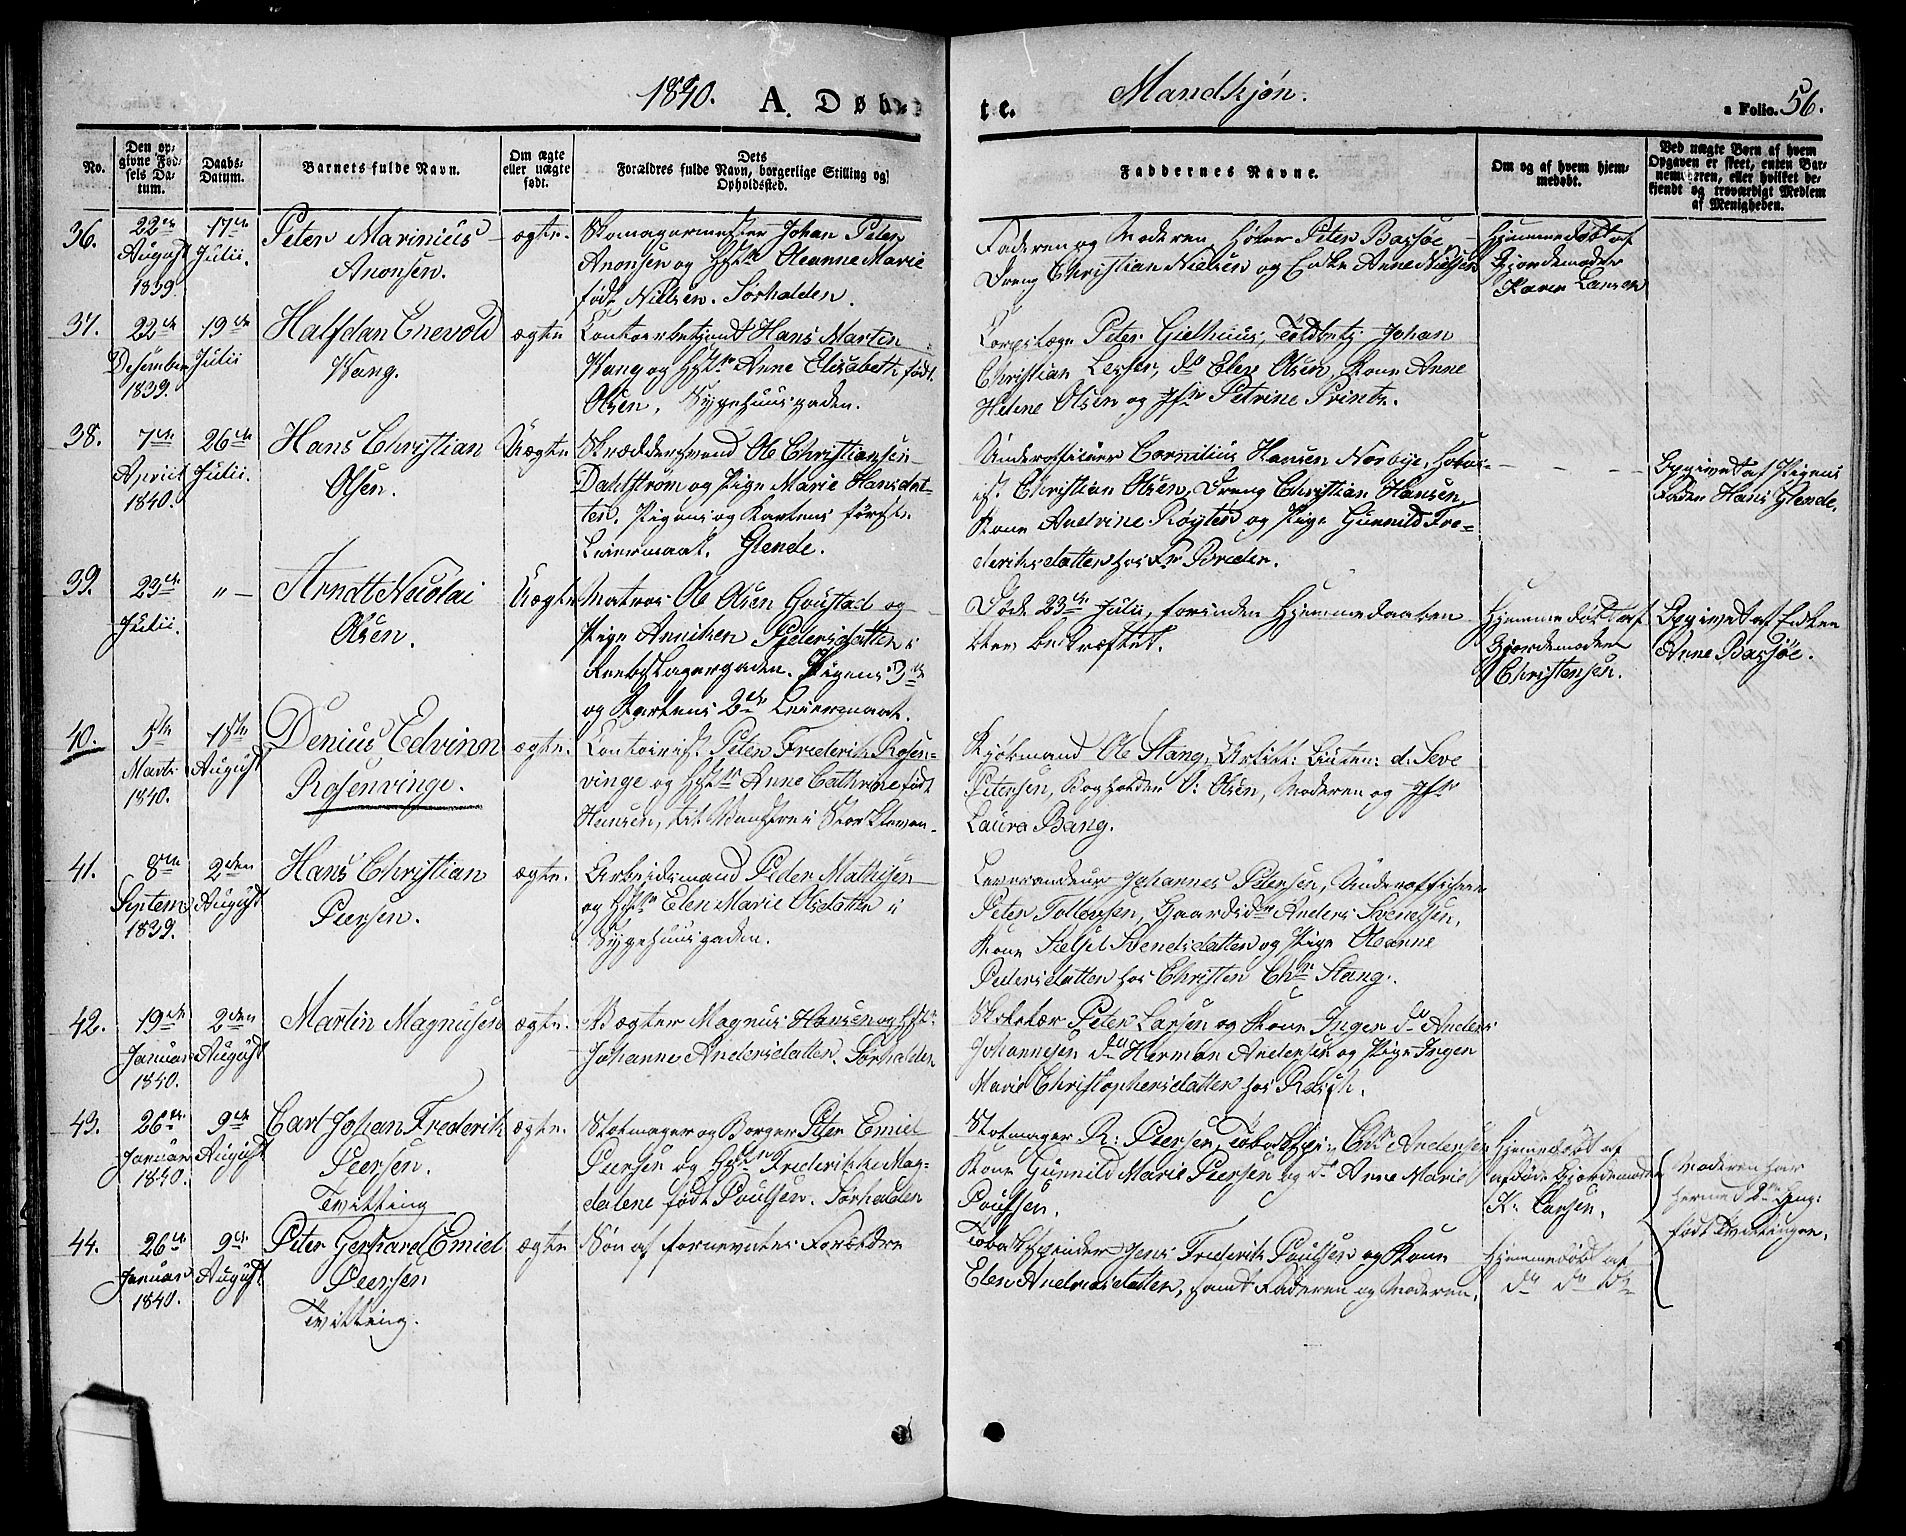 1840. A. Døbte. Mandkjøn. a Folio. 56.
No.
Den opgivne Fødsels Datum.
Daabs-Datum.
Barnets fulde Navn.
Om ægte eller uægte født.
Dets Forældres fulde Navn, borgerlige Stilling og Opholdssted.
Faddernes Navne.
Om og af hvem hjemmedøbt.
Ved uægte Børn af hvem Opgaven er skeet, enten Barnemoderen, eller hvilket bekjendt og troværdigt Medlem af Menigheden.
36.
22de August 1839.
17de Julii.
Peter Marinius
Anonsen.
ægte.
Skomagermester Johan Peter
Anonsen og Hstr Oleanne Marie
født Nielsen. Sørhalden.
Faderen og Moderen, Høker Peter Bassøe,
Dreng Christian Nielsen og Enke Anne Nielsen
Hjemmedøbt af
Gjordemoder
Karen Larsen
37.
22de Desember 1839.
19de Julii
Halfdan Enevold
Wang.
ægte
Contoirbetjent Hans Martin
Wang og Hstr Anne Elisabeth født
Olsen. Sygehuusgaden.
Corpslæge Peter Gielhuus, Toldbetj. Johan
Christian Lesser, do Elen Olsen, Kone Anne
Helene Olsen og Jfr Petrine Printz.
38.
7de April 1840.
26de Julii.
Hans Christian
Olsen.
Uægte
Skræddersvend Ole Christiansen
Dahlstrøm og Pige Marie Hansdat-
ter. Pigens og Karlens første
Leiermaal. Glende.
Underofficier Cornilius Hansen Norbye,
Christian Olsen, Dreng Christian Hansen,
Kone Andrine Røyter og Pige Gunnild Fre-
deriksdatter hos Fr Breder.
Opgivet af Pigens
Fader Hans Glende.
39.
23de Julii.
"
Arndt Nicolai
Olsen.
Uægte
Matros Ole Olsen Goustad og
Pige Annichen Pedersdatter i
Reebslagergaden. Pigens 3de
og Karlens 2de Leiermaal.
Døde 23de Julii, forinden Hjemmedaaben
blev bekræftet.
Hjemmedøbt af
Gjordemoder
Christensen.
Opgivet af Enken
Anne Bassøe.
40.
5te Marts 1840.
1ste August
Denius Edvinn
Rosenvinge.
ægte.
Contoirist Peter Frederik Rosen-
vinge og Hstr Anne Cathrine født
Hansen,
Kjøbmand Ole Stang, Artill: Lieuten: d. Seve
Petersen, Bogholder O: Olsen, Moderen og Jfr
Laura Bang.
41.
8de Septem 1839.
2den August
Hans Christian
Peersen.
ægte.
Arbeidsmand Peder Mathisen
og Hstr Elen Marie Olsdatter i
Sygehuusgaden.
Leverandeur Johannes Petersen, Underofficier
Peter Tollevsen, Gaardsdr Anders Svendsen,
Kone Sidsel Svendsdatter og Pige Oleanne
Pedersdatter hos Christen Chr Stang.
42.
19de Januar 1840.
2den August
Martin Magnusen
ægte.
Vægter Magnus Hansen og Hstr
Johanne Andersdatter. Sørhalden
Peter Larsen og Kone Inger do Anders
Johannesen do Herman Andersen og Pige Inger
Marie Christophersdatter hos Rasch.
43.
26de Januar 1840.
9de August
Carl Johan Frederik
Peersen.
Tvilling
ægte.
Skomager og Borger Peter Emiel
Peersen og Hstr Frederikke Mag-
dalene født Poulsen. Sørhalden
Skomager R: Peersen, Tobaksspin: Chr Andersen
Kone Gunnild Marie Peersen og do Anne Marie
Poulsen.
Hjemmedøbt af
afdøde Gjordemoder
K: Larsen.
Moderen har
hermed 2de Gang
født Tvillinger.
44.
26de Januar 1840.
9de August
Peter Gerhard Emiel
Peersen
Tvilling.
ægte
Søn af fornevnte Forældre
Tobaksspinder Jens Frederik Poulsen og Kone
Elen Andreasdatter, samt Faderen og Moderen.
Hjemmedøbt af
do do do